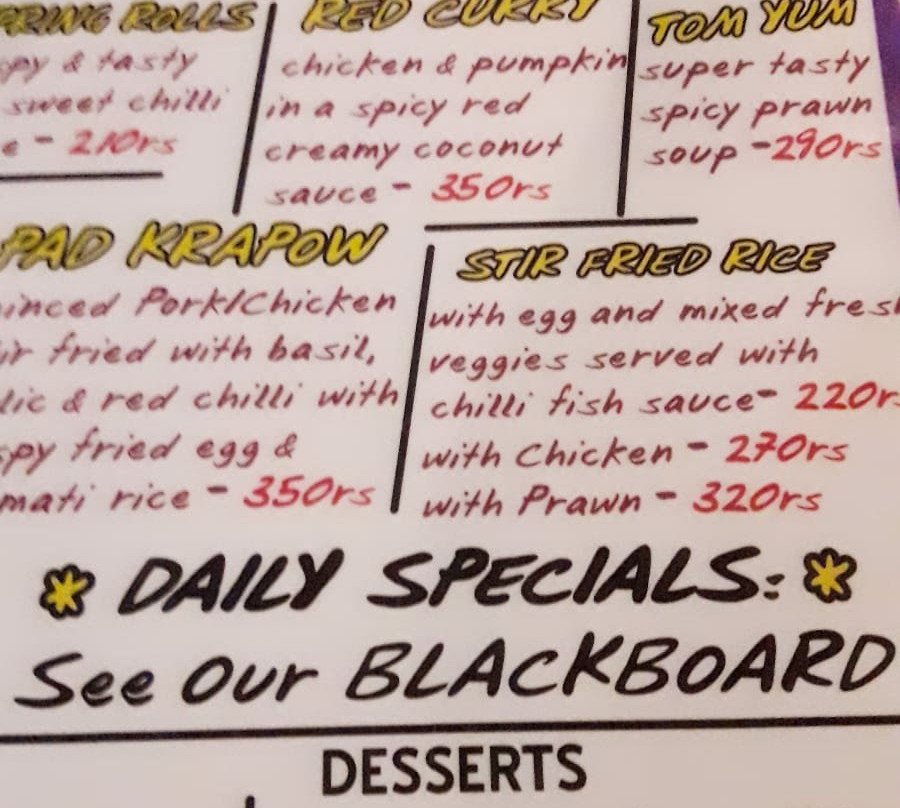 RING ROLLS
py & tasty
sweet chilli
e - 210rs
RED CURRY
chicken & pumpkin
in a spicy red
creamy coconut
sauce - 350rs
TOM YUM
super tasty
spicy prawn
soup -290rs
PAD KRAPOW
inced Pork/Chicken
ir fried with basil,
lic & red chilli with
spy fried egg &
mati rice - 350rs
STIR FRIED RICE
with egg and mixed fresh
veggies served with
chilli fish sauce- 220r
with Chicken - 270rs
with Prawn - 320rs
* DAILY SPECIALS: *
See Our BLACKBOARD
DESSERTS